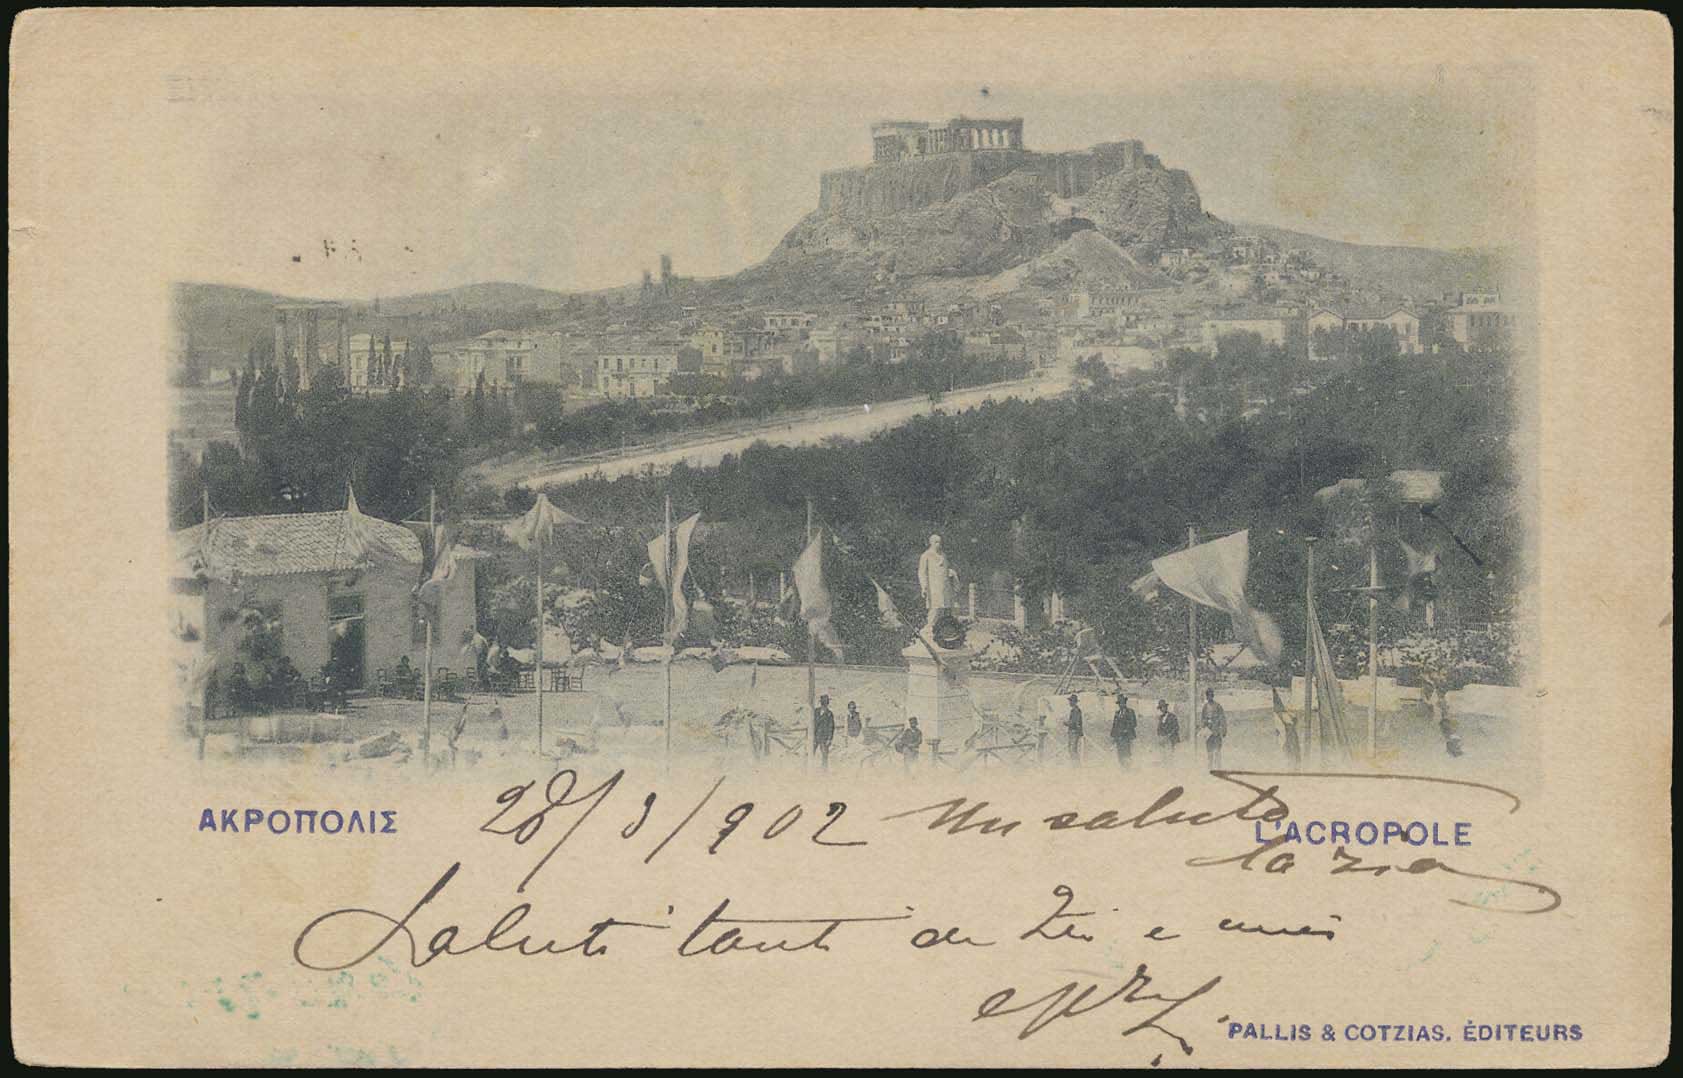 ΑΚΡΟΠΟΛΙΣ
28/3/902 Mi saluto
L'ACROPOLE
la zia
Saluti tanti da Zii e
PALLIS & COTZIAS. ÉDITEURS